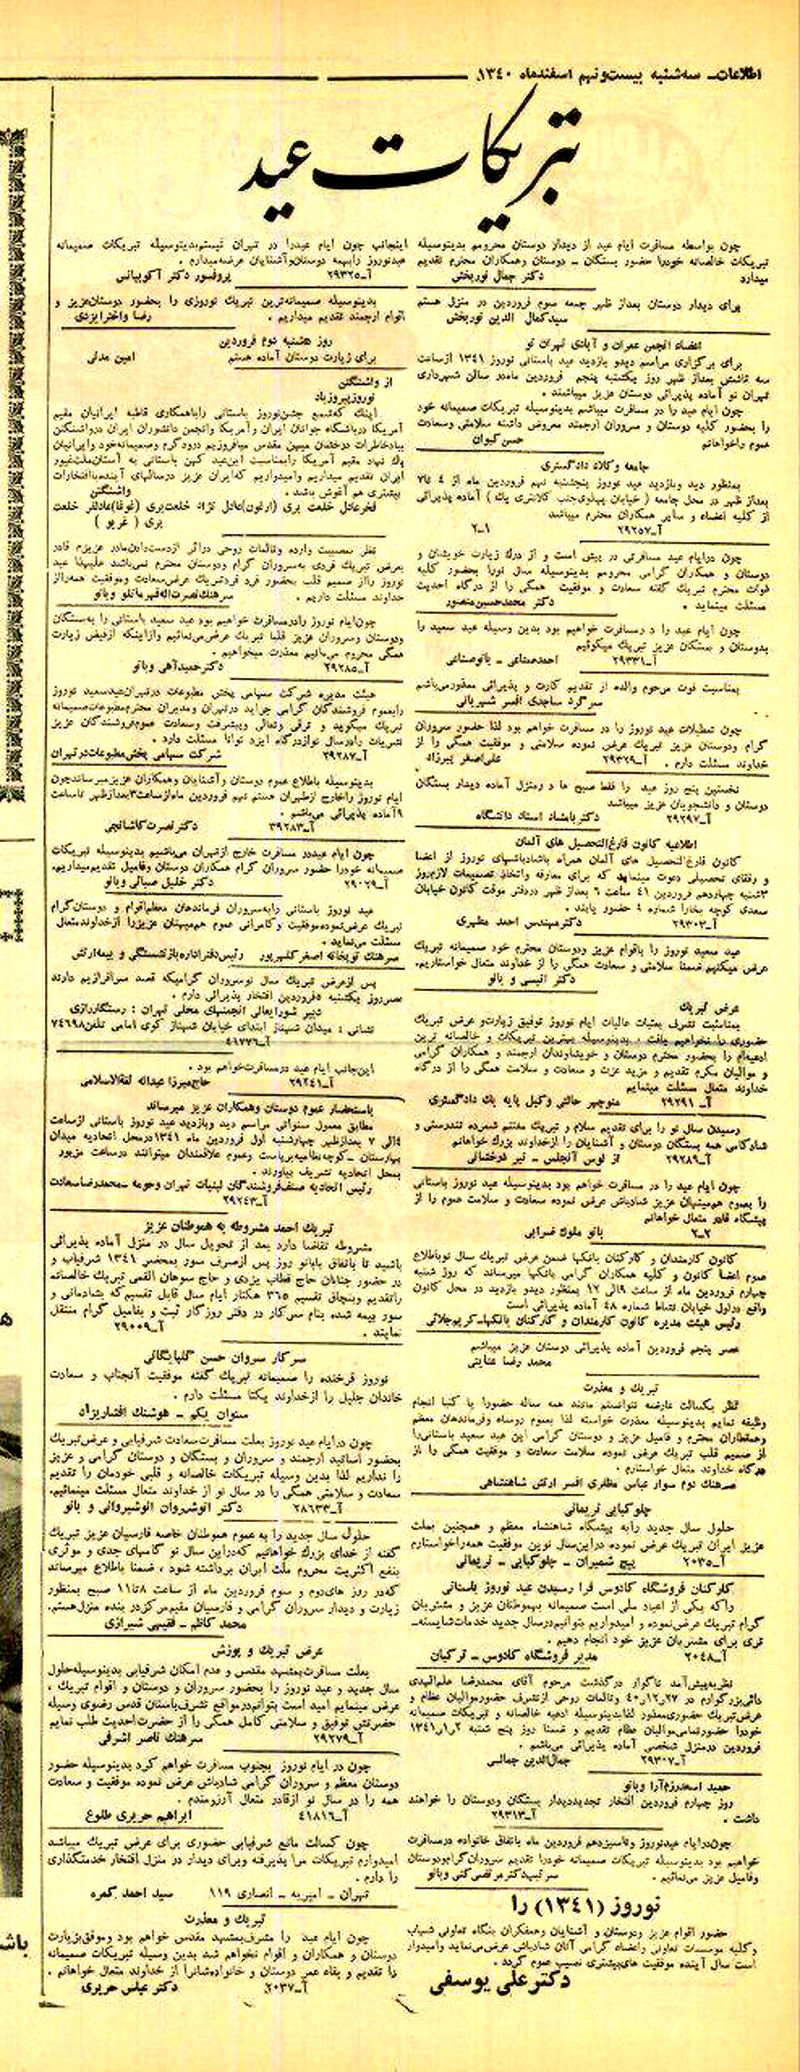 اطلاعات ــ سه‌شنبه بیست‌ونهم اسفندماه ۱۳۴۰
تبریکات عید
چون بواسطه مسافرت ایام عید از دیدار دوستان محرومم بدینوسیله
تبریکات خالصانه خودرا حضور بستگان ــ دوستان وهمکاران محترم تقدیم
میدارد
دکتر جمال نوربخش
برای دیدار دوستان بعداز ظهر جمعه سوم فروردین در منزل هستم
سیدکمال الدین نوربخش
اعضاء انجمن عمران و آبادی تهران نو
برای برگزاری مراسم دیدو بازدید عید باستانی نوروز ۱۳۴۱ ازساعت
سه تاشش بعداز ظهر روز یکشنبه پنجم فروردین ماه‌در سالن شهرداری
تهران نو آماده پذیرائی دوستان عزیز میباشند .
چون ایام عید را در مسافرت میباشم بدینوسیله تبریکات صمیمانه خود
را بحضور کلیه دوستان و سروران ارجمند معروض داشته سلامتی وسعادت
عموم راخواهانم
حسن کیوان
جامعه وکلاء دادگستری
بمنظور دید وبازدید عید نوروز پنجشنبه نهم فروردین ماه از ۴ تا۷
بعداز ظهر در محل جامعه ( خیابان پهلوی‌جنب کلانتری یك ) آماده پذیرائی
از کلیه اعضاء و سایر همکاران محترم میباشد
آ ــ۲۹۲۵۷ ۱ــ۲
چون درایام عید مسافرتی در پیش است و از درك زیارت خویشان و
دوستان و همکاران گرامی محرومم بدینوسیله سال نورا بحضور کلیه
ذوات محترم تبریك گفته سعادت و موفقیت همگی را از درگاه احدیت
مسئلت مینماید .
دکتر محمدحسین‌منصور
چون ایام عید را در مسافرت خواهیم بود بدین وسیله عید سعید را
بدوستان و بستگان عزیز تبریك میگوئیم
آ ــ۲۹۳۳۱ احمدصناعی ــ بانوصناعی
بمناسبت فوت مرحوم والده از تقدیم کارت و پذیرائی معذورمی‌باشم
سرگرد ساجدی افسر شهربانی
چون تعطیلات عید نوروز را در مسافرت خواهم بود لذا حضور سروران
گرام ودوستان عزیز تبریك عرض نموده سلامتی و موفقیت همگی را از
خداوند مسئلت دارم . آ ــ۲۹۳۲۹ علی‌اصغر پیرزاد
نخستین پنج روز عید را فقط صبح ها و درمنزل آماده دیدار بستگان
دوستان و دانشجویان عزیز میباشد
آ ــ۲۹۲۹۷ دکتربامشاد استاد دانشگاه
اطلاعیه کانون فارغ‌التحصیل های آلمان
کانون فارغ‌التحصیل های آلمان همراه باشادباشهای نوروز از اعضا
و رفقای تحصیلی دعوت مینماید که برای معارفه واتخاذ تصمیمات لازم‌روز
۳شنبه چهاردهم فروردین ۴۱ ساعت ۶ بعداز ظهر دردفتر موقت کانون خیابان
سعدی کوچه بخارا شماره ۴ حضور یابند .
آ ــ۲۹۳۰۳ دکترمهندس احمد مطهری
عید سعید نوروز را باقوام عزیز ودوستان محترم خود صمیمانه تبریك
عرض میکنیم ضمنا سلامتی و سعادت همگی را از خداوند متعال خواستاریم.
دکتر انیسی و بانو
عرض تبریك
بمناسبت تشرف بعتبات عالیات ایام نوروز توفیق زیارت‌و عرض تبریك
حضوری را نخواهیم یافت . بدینوسیله بهترین تبریکات و خالصانه ترین
ادعیه‌ام را بحضور محترم دوستان و خویشاوندان ارجمند و همکاران گرامی
و موالیان مکرم تقدیم و مزید عزت و سعادت و سلامت همگی را از درگاه
خداوند متعال مسئلت مینمایم
آ ــ ۲۹۲۹۱ منوچهر حالتی وکیل پایه یك دادگستری
رسیدن سال نو را برای تقدیم سلام و تبریك مغتنم شمرده تندرستی و
شادکامی همه بستگان دوستان و آشنایان را ازخداوند بزرك خواهانم
آ ــ۲۹۲۸۹ از لوس آنجلس ــ نیر درخشانی
چون ایام عید را در مسافرت خواهم بود بدینوسیله عید نوروز باستانی
را بعموم هم‌میهنان عزیز شادباش عرض نموده سعادت و سلامت عموم را از
پیشگاه قادر متعال خواهانم
۲ــ۲ بانو ملوك ضرابی
کانون کارمندان و کارکنان بانکها ضمن عرض تبریك سال نوباطلاع
عموم اعضا کانون و کلیه همکاران گرامی بانکها میرساند که روز شنبه
چهارم فروردین ماه از ساعت ۹الی ۱۲ بمنظور دیدو بازدید در محل کانون
واقع دراول خیابان نشاط شماره ۴۸ آماده پذیرائی است
رئیس هیئت مدیره کانون کارمندان و کارکنان بانکهاــ کریم‌جلائی
عصر پنجم فروردین آماده پذیرائی دوستان عزیز میباشم
محمد رضا عنایتی
تبریك و معذرت
نظر بکسالت عارضه نتوانستم مانند همه ساله حضورا یا کتبا انجام
وظیفه نمایم بدینوسیله معذرت خواسته لذا بعموم روساء وفرماندهان معظم
وهمقطاران محترم و فامیل عزیز و دوستان گرامی این عید سعید باستانی‌را
از صمیم قلب تبریك عرض نموده سلامت سعادت و موفقیت همگی را از
درگاه خداوند متعال خواستارم .
سرهنك دوم سوار عباس مظفری افسر ارتش شاهنشاهی
چلوکبابی نریمانی
حلول سال جدید رابه پیشگاه شاهنشاه معظم و همچنین بملت
عزیز ایران تبریك عرض نموده دراین‌سال نوین موفقیت همه‌راخواستارم
آ ــ۲۰۳۵ پیچ شمیران ــ چلوکبابی ــ نریمانی
کارکنان فروشگاه کادوس فرا رسیدن عید نوروز باستانی
راکه یکی از اعیاد ملی است صمیمانه بهموطنان عزیز و مشتریان
گرام تبریك عرض‌نموده و امیدواریم بتوانیم‌درسال جدید خدمات‌شایسته‌ــ
تری برای مشتریان عزیز خود انجام دهیم .
آ ــ۲۰۴۸ مدیر فروشگاه کادوس ــ ترکیان
نظربه‌پیش‌آمد ناگوار درگذشت مرحوم آقای محمدرضا علم‌الهدی
دائی‌بزرگوارم در ۲۷ر۱۲ر۴۰ وتالمات روحی ازتشرف حضورموالیان عظام و
عرض‌تبریك حضوری‌معذور لذابدینوسیله ادعیه خالصانه و تبریکات صمیمانه
خودرا حضورتمامی‌موالیان عظام تقدیم و ضمنا روز پنج شنبه ۲ر۱ر۱۳۴۱
فروردین درمنزل شخصی آماده پذیرائی می‌باشم .
آ ــ۲۹۳۰۷ جمال‌الدین جمالی
حمید اسعدرزم‌آرا وبانو
روز چهارم فروردین افتخار تجدیددیدار بستگان ودوستان را خواهند
داشت . آ ــ۲۹۳۱۳
چون‌درایام عیدنوروز وتاسیزدهم فروردین ماه باتفاق خانواده درمسافرت
خواهیم بود بدینوسیله تبریکات صمیمانه خودرا تقدیم سروران‌گرام‌ودوستان
وفامیل عزیز می‌نمائیم . سرتیپ‌دکترمرتضی‌کنی وبانو
نوروز (۱۳۴۱) را
حضور اقوام عزیز ودوستان و آشنایان وهمفکران بنگاه تعاونی شهباب
وکلیه موسسات تعاونی واعضاء گرامی آنان شادباش عرض‌می‌نماید وامیدوار
است سال آینده موفقیت های‌بیشتری نصیب عموم گردد .
دکتر علی یوسفی
اینجانب چون ایام عیدرا در تهران نیستم‌بدینوسیله تبریکات صمیمانه
عیدنوروز رابهمه دوستان‌وآشنایان عرضه‌میدارم .
آ ــ۲۹۳۲۵ پروفسور دکتر آکوبیانس
بدینوسیله صمیمانه‌ترین تبریك نوروزی را بحضور دوستان‌عزیز و
اقوام ارجمند تقدیم میداریم . رضا واخترایزدی
روز هشنبه دوم فروردین
برای زیارت دوستان آماده هستم امین مدنی
از واشنگتن
نوروزپیروزباد
اینك که‌شمع جشن‌نوروز باستانی راباهمکاری قاطبه ایرانیان مقیم
آمریکا درباشگاه جوانان ایران وآمریکا وانجمن دانشوران ایران درواشنگتن
بیادخاطرات درخشان میهن مقدس میافروزیم درودگرم وصمیمانه‌خود وایرانیان
پاك نهاد مقیم آمریکا رابمناسبت این‌عید کهن باستانی به آستان‌ملت‌غیور
ایران تقدیم میداریم وامیدواریم که‌ایران عزیز درسالهای آینده‌باافتخارات
بیشتری هم آغوش باشد . واشنگتن
فخرعادل خلعت بری (ارغون)عادل نژاد خلعت‌بری (غوغا)عادلفر خلعت
بری ( غریو )
نظر بمصیبت وارده وتالمات روحی دراثر ازدست‌دادن‌مادر عزیزم قادر
بعرض تبریك فردی به‌سروران گرام ودوستان محترم نمی‌باشد علیهذا عید
نوروز رااز صمیم قلب بحضور فرد فردتبریك عرض‌سعادت وموفقیت همه‌رااز
خداوند مسئلت داریم . سرهنك‌نصرت‌اله‌قهرمانلو وبانو
چون‌ایام نوروز رادرمسافرت خواهیم بود عید سعید باستانی را به‌بستگان
ودوستان وسروران عزیز قلبا تبریك عرض‌می‌نمائیم وازاینکه ازفیض زیارت
همگی محروم می‌مانیم معذرت میخواهیم .
آ ــ۲۹۲۸۵ دکترحمیدآهی وبانو
هیئت مدیره شرکت سهامی پخش مطبوعات درتهران‌عیدسعید نوروز
رابعموم فروشندگان گرامی جراید درتهران ومدیران محترم‌مطبوعات‌صمیمانه
تبریك میگوید و ترقی وتعالی وپیشرفت وسعادت عموم‌فروشندگان عزیز
نشریات رادرسال نوازدرگاه ایزد توانا مسئلت دارد .
آ ــ۲۹۲۸۷ شرکت سهامی پخش‌مطبوعات‌درتهران
بدینوسیله باطلاع عموم دوستان وآشنایان وهمکاران عزیزمیرساندچون
ایام نوروز راخارج ازطهران هستم نهم فروردین ماه‌ازساعت۳بعدازظهر تاساعت
۹آماده پذیرائی می‌باشم .
آ ــ۲۹۲۸۳ دکترنصرت‌کاشانچی
چون ایام عیددر مسافرت خارج ازتهران می‌باشیم بدینوسیله تبریکات
صمیمانه خودرا حضور سروران گرام همکاران دوستان وفامیل تقدیم‌میداریم.
آ ــ۲۹۰۲۹ دکتر خلیل صبائی وبانو
عید نوروز باستانی رابه‌سروران فرماندهان معظم‌اقوام و دوستان‌گرام
تبریك عرض‌نموده‌موفقیت وکامرانی عموم هم‌میهنان عزیزرا ازخداوندمتعال
مسئلت می‌نماید .
سرهنك توپخانه اصغرکلهرپور رئیس‌دفتراداره‌بازنشستگی و بیمه‌ارتش
پس ازعرض تبریك سال نوسروران گرامیکه قصد سرافرازیم دارند
عصرروز یکشنبه ۵فروردین افتخار پذیرائی دارم .
دبیر شورایعالی انجمنهای محلی تهران : رستگاررازی
نشانی : میدان شهناز ابتدای خیابان شهناز کوی امامی تلفن۷۴۶۹۸
آ ــ۴۱۷۷۶
این‌جانب ایام عید درمسافرت‌خواهم بود .
آ ــ۲۹۲۴۱ حاج‌میرزا عبداله ثقةالاسلامی
باستحضار عموم دوستان وهمکاران عزیز میرساند
مطابق معمول سنواتی مراسم دید وبازدید عید نوروز باستانی ازساعت
۴الی ۷ بعدازظهر چهارشنبه اول فروردین ماه ۱۳۴۱درمحل اتحادیه میدان
بهارستان ــ کوچه‌نظامیه‌برپاست وعموم علاقمندان میتوانند درساعت مزبور
بمحل اتحادیه تشریف بیاورند .
رئیس اتحادیه صنف‌فروشندگان لبنیات تهران وحومه ــ محمدرضاسعادت
آ ــ۲۹۲۴۳
تبریك احمد مشروطه به هموطنان عزیز
مشروطه تقاضا دارد بعد از تحویل سال در منزل آماده پذیرائی
باشید تا باتفاق باباتو روز پس ازصرف سور بمحضر ۱۳۴۱ شرفیاب و
در حضور جنابان حاج قطاب یزدی و حاج سوهان القمی تبریك خالصانه
راتقدیم وبنچاق تقسیم ۳۶۵ هکتار ایام سال قابل تقسیم‌که بشادمانی و
سور بیمه شده بنام سرکار در دفتر روزگار ثبت و بفامیل گرام منتقل
نمایند . آ ــ۲۹۰۰۹
سرکار سروان حسن گلپایگانی
نوروز فرخنده را صمیمانه تبریك گفته موفقیت آنجناب و سعادت
خاندان جلیل را ازخداوند یکتا مسئلت دارم .
ستوان یکم ــ هوشنك افشاریزاد
چون درایام عید نوروز بعلت مسافرت‌سعادت شرفیابی و عرض‌تبریك
بحضور اساتید ارجمند و سروران و بستگان و دوستان گرامی و عزیز
را نداریم لذا بدین وسیله تبریکات خالصانه و قلبی خودمان را تقدیم
سعادت و سلامتی همگی را در سال نو از خداوند متعال مسئلت مینمائیم.
آ ــ۲۸۶۳۳ دکتر انوشیروان الوشیروانی و بانو
حلول سال جدید را به عموم هموطنان خاصه فارسیان عزیز تبریك
گفته از خدای بزرك خواهانیم که‌دراین سال نو گامهای جدی و موثری
بنفع اکثریت محروم ملت ایران برداشته شود ، ضمنا باطلاع میرساند
که‌در روز های‌دوم و سوم فروردین ماه از ساعت ۸تا۱۱ صبح بمنظور
زیارت و دیدار سروران گرامی و فارسیان مقیم‌مرکزدر بنده منزل‌هستم.
محمد کاظم ــ فقیهی شیرازی
عرض تبریك و پوزش
بعلت مسافرت‌بمشهد مقدس و عدم امکان شرفیابی بدینوسیله‌حلول
سال جدید و عید نوروز را بحضور سروران و دوستان و اقوام تبریك ،
عرض مینمایم امید است بتوانم‌درمواقع تشرف‌باستان قدس رضوی وسیله
حضرتش توفیق و سلامتی کامل همگی را از حضرت‌احدیت طلب نمایم
آ ــ۲۹۲۷۹ سرهنك ناصر اشرفی
چون در ایام نوروز بجنوب مسافرت خواهم کرد بدینوسیله حضور
دوستان معظم و سروران گرامی شادباش عرض نموده موفقیت و سعادت
همه را در سال نو ازقادر متعال آرزومندم .
آ ــ۴۱۸۱۶ ابراهیم حریری طلوع
چون کسالت مانع شرفیابی حضوری برای عرض تبریك میباشد
امیدوارم تبریکات مرا پذیرفته وبرای دیدار در منزل افتخار خدمتگذاری
را دارم .
تهران ــ امیریه ــ انصاری ۱۱۹ سید احمد کمره
تبریك و معذرت
چون ایام عید را مشرف‌بمشهد مقدس خواهم بود وموفق‌بزیارت
دوستان و همکاران و اقوام نخواهم شد بدین وسیله تبریکات صمیمانه
را تقدیم و بقاء عمر دوستان و خانواده‌شانرا از خداوند متعال خواهانم .
آ ــ۲۰۳۷ دکتر عباس حریری